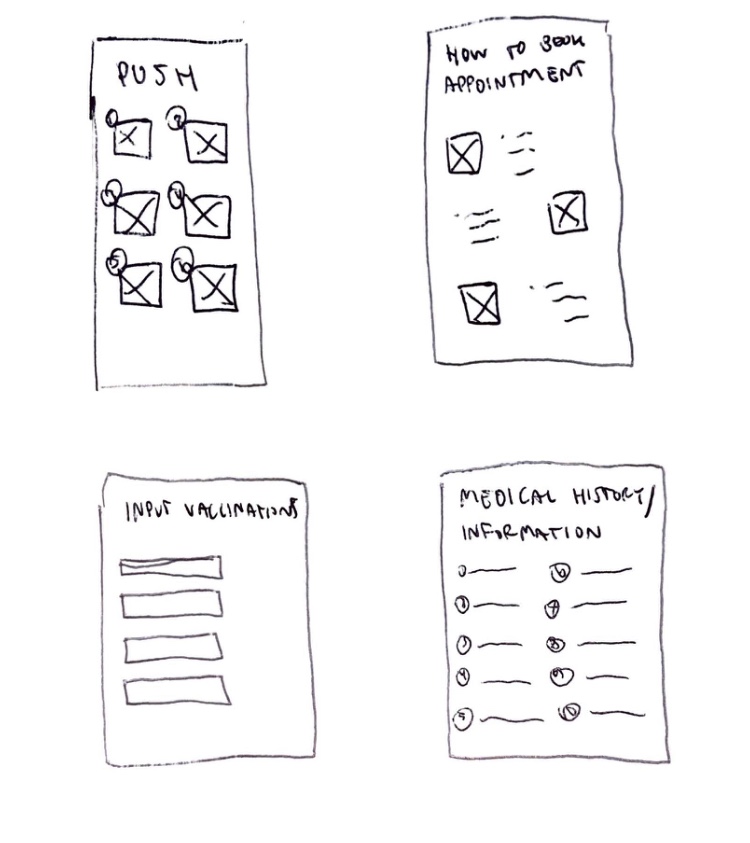 PUSH
1 2
3 4
5 6
HOW TO BOOK
APPOINTMENT
INPUT VACCINATIONS
MEDICAL HISTORY/
INFORMATION
1 6
2 7
3 8
4 9
5 10